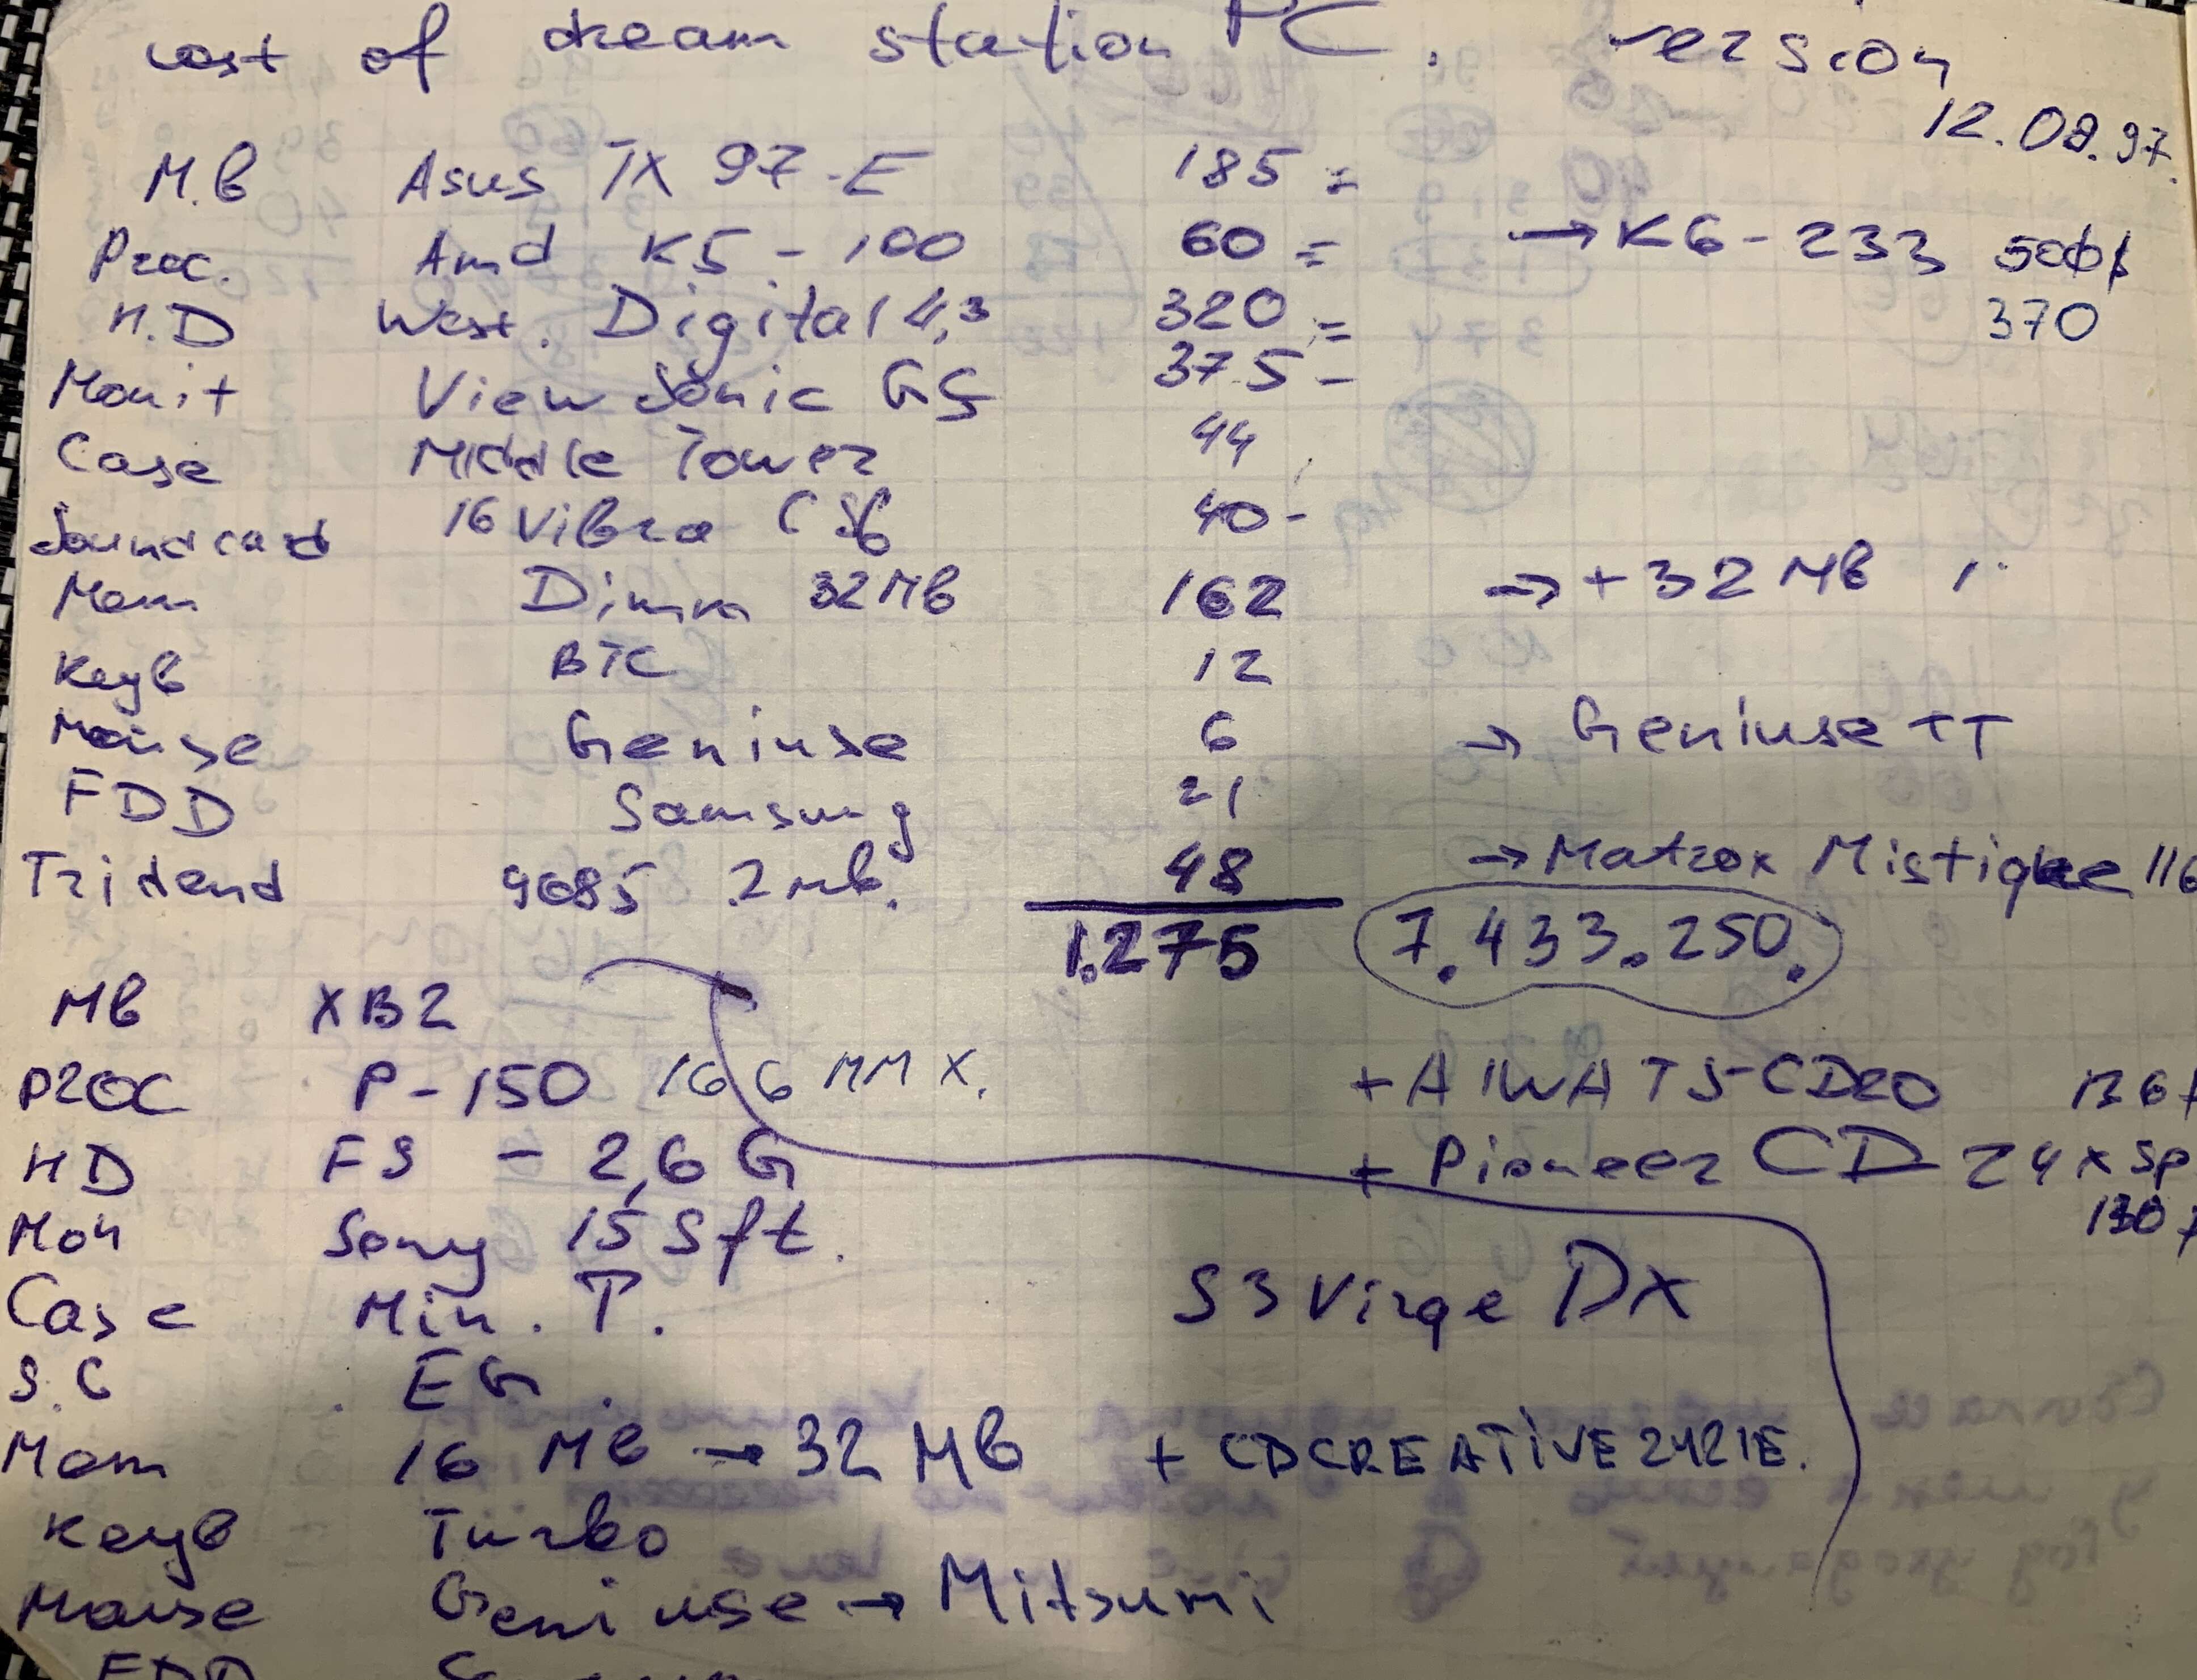 cost of dream station PC. version
12.08.97.
M.b Asus TX 97-E 185 =
Proc. Amd K5 - 100 60 = → K6 - 233 500$
H.D West. Digital 4,3 320 = 370
Monit View Sonic G5 375 -
Case Middle Tower 44
Soundcard 16 Vibra C Sb 40 -
Mem Dimm 32 Mb 162 → + 32 Mb
Keyb BTC 12
Mouse Geniuse 6 → Geniuse TT
FDD Samsung 21
Tridend 9685 2 mb. 48 → Matrox Mistique 116
1.275 7.433.250.
Mb XB2
proc P - 150 166 MMX. + AIWA TS-CD20 136
HD FS - 2,6 G + Pioneer CD 24 x sp
130
Mon Sony 15 Sft.
Case Min. T. S3 Virge DX
S.C EG.
Mem 16 Mb → 32 Mb + CDCREATIVE 2421E.
Keyb Turbo
Mouse Geniuse → Mitsumi
FDD